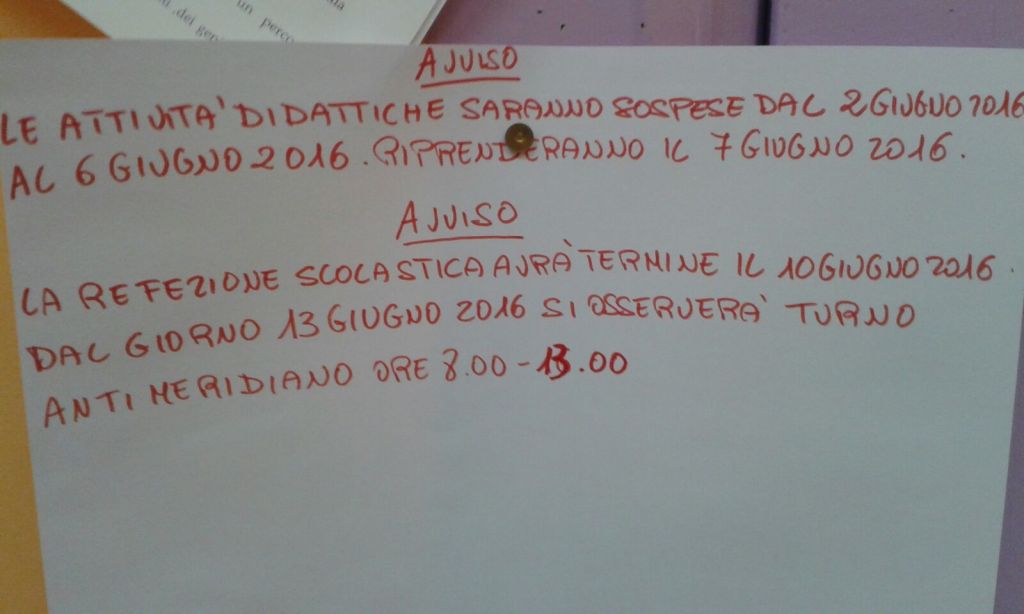 un perco
dei gen
AVVISO
LE ATTIVITA' DIDATTICHE SARANNO SOSPESE DAL 2 GIUGNO 2016
AL 6 GIUGNO 2016. RIPRENDERANNO IL 7 GIUGNO 2016.
AVVISO
LA REFEZIONE SCOLASTICA AVRA' TERMINE IL 10 GIUGNO 2016.
DAL GIORNO 13 GIUGNO 2016 SI OSSERVERA' TURNO
ANTIMERIDIANO ORE 8.00 - 13.00